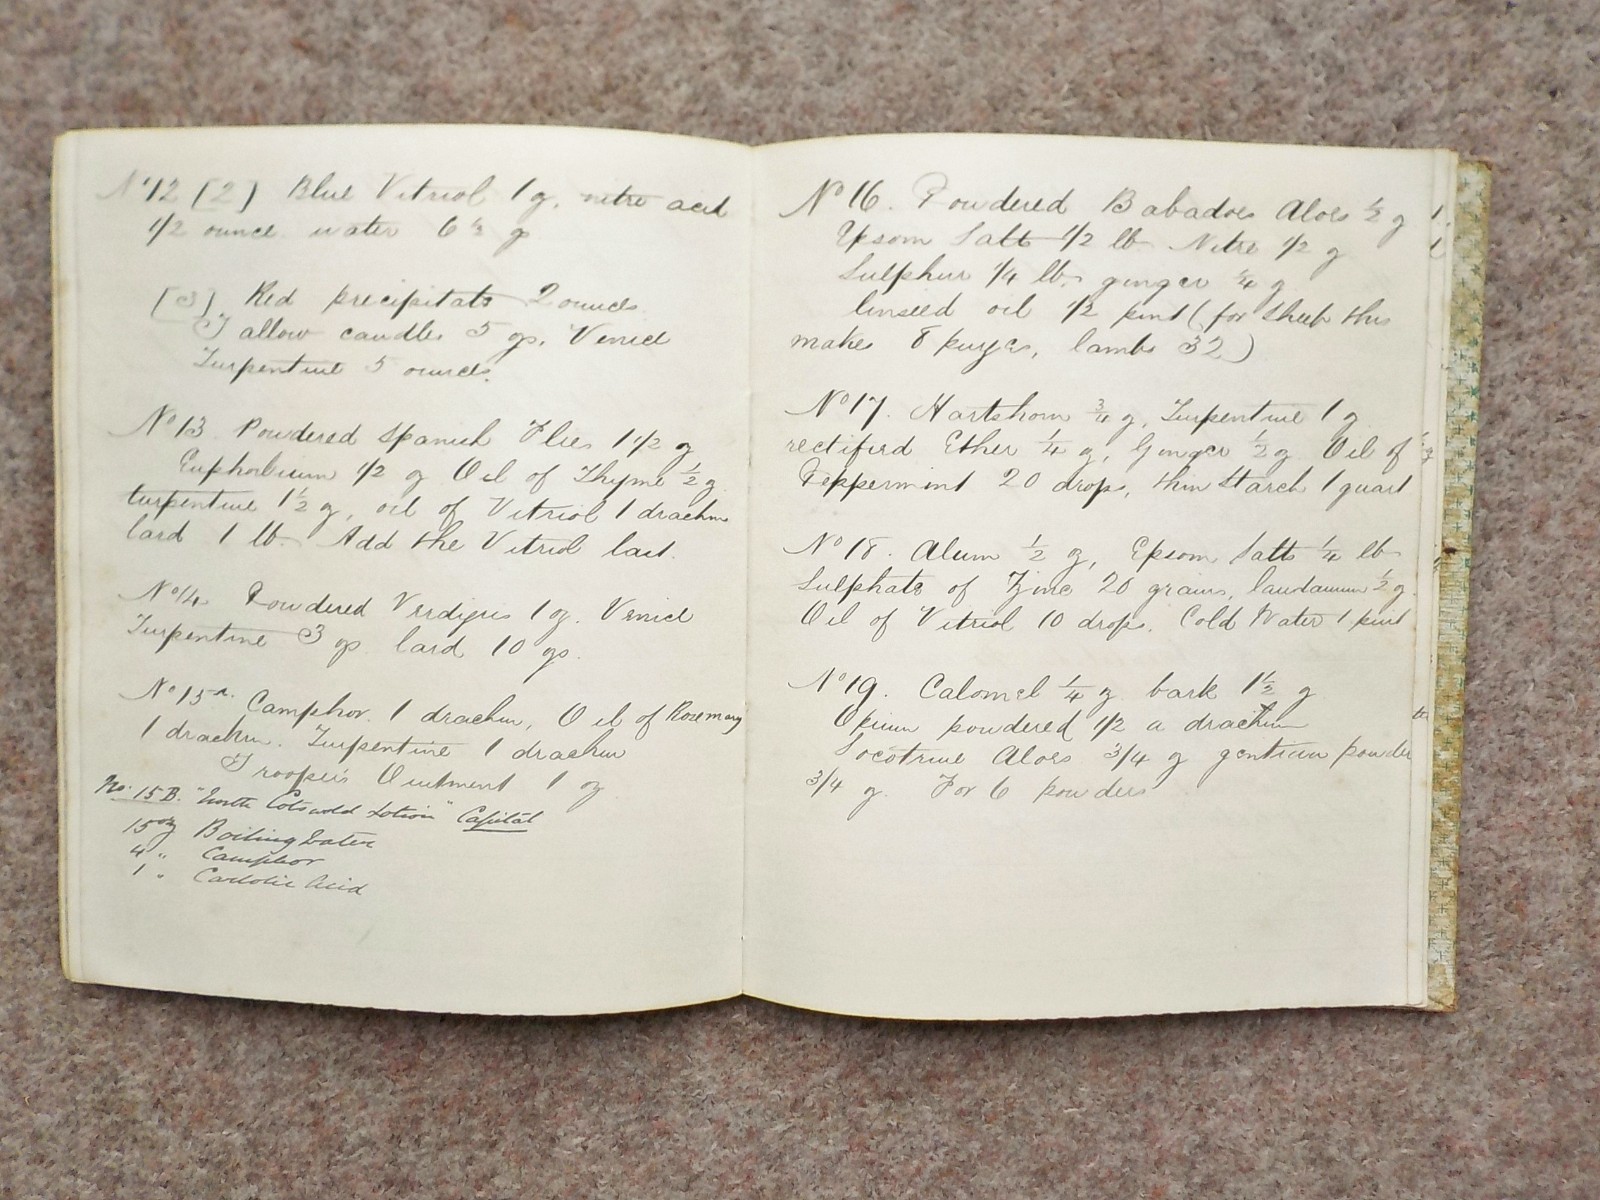 No 12 [2] Blue Vitriol 1 oz. nitre acid
1/2 ounce water 6 1/2 oz
[3] Red precipitate 2 ounces
Tallow candles 5 ozs. Venice
Turpentine 5 ounces.
No 13 Powdered Spanish Flies 1 1/2 oz
Euphorbium 1/2 oz Oil of Thyme 1/2 oz
turpentine 1 1/2 oz, oil of Vitriol 1 drachm
lard 1 lb. Add the Vitriol last.
No 14 Powdered Verdigris 1 oz. Venice
Turpentine 3 ozs lard 10 ozs.
No 15 A. Camphor. 1 drachm, Oil of Rosemary
1 drachm. Turpentine 1 drachm
Trooper's Ointment 1 oz
No. 15 B. "North Cotswold Lotion" Capital
15 oz Boiling Water
4 " Camphor
1 " Carbolic Acid
No 16. Powdered Babadoes Aloes 1/2 oz
Epsom Salts 1/2 lb Nitre 1/2 oz
Sulphur 1/4 lb. ginger 1/4 oz
linseed oil 1/2 pint (for sheep this
makes 8 purges, lambs 32)
No 17. Hartshorn 3/4 oz, Turpentine 1 oz
rectified Ether 1/4 oz, Ginger 1/2 oz Oil of
Peppermint 20 drops, thin Starch 1 quart
No 18. Alum 1/2 oz, Epsom Salts 1/4 lb
Sulphate of Zinc 20 grains, laudanum 1/2 oz.
Oil of Vitriol 10 drops. Cold Water 1 pint
No 19. Calomel 1/4 oz bark 1 1/2 oz
Opium powdered 1/2 a drachm
Socotrine Aloes 3/4 oz gentian powder
3/4 oz. For 6 powders